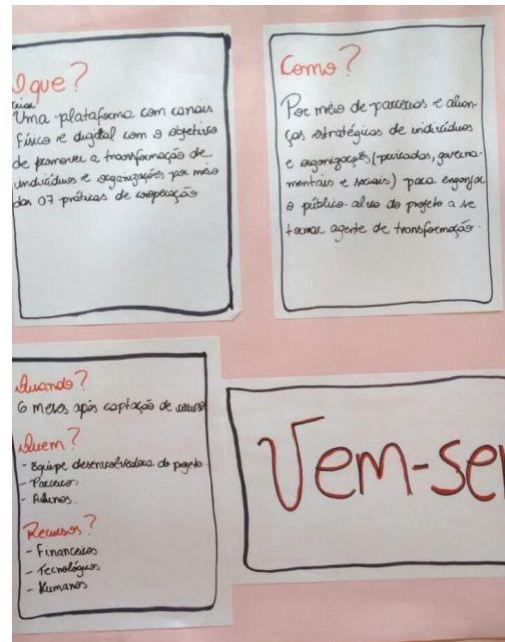 O que?
criar
Uma plataforma com canais
físico e digital com o objetivo
de promover a transformação de
indivíduos e organizações por meio
das 07 práticas de cooperação
Como?
Por meio de parcerias e alian-
ças estratégicas de indivíduos
e organizações (privadas, governa-
mentais e sociais) para engajar
o público-alvo do projeto a se
tornar agente de transformação.
Quando?
6 meses após captação de
Quem?
- Equipe desenvolvedora do projeto
- Parceiros
- Alunos
Recursos?
- Financeiros
- Tecnológicos
- Humanos
Vem-ser